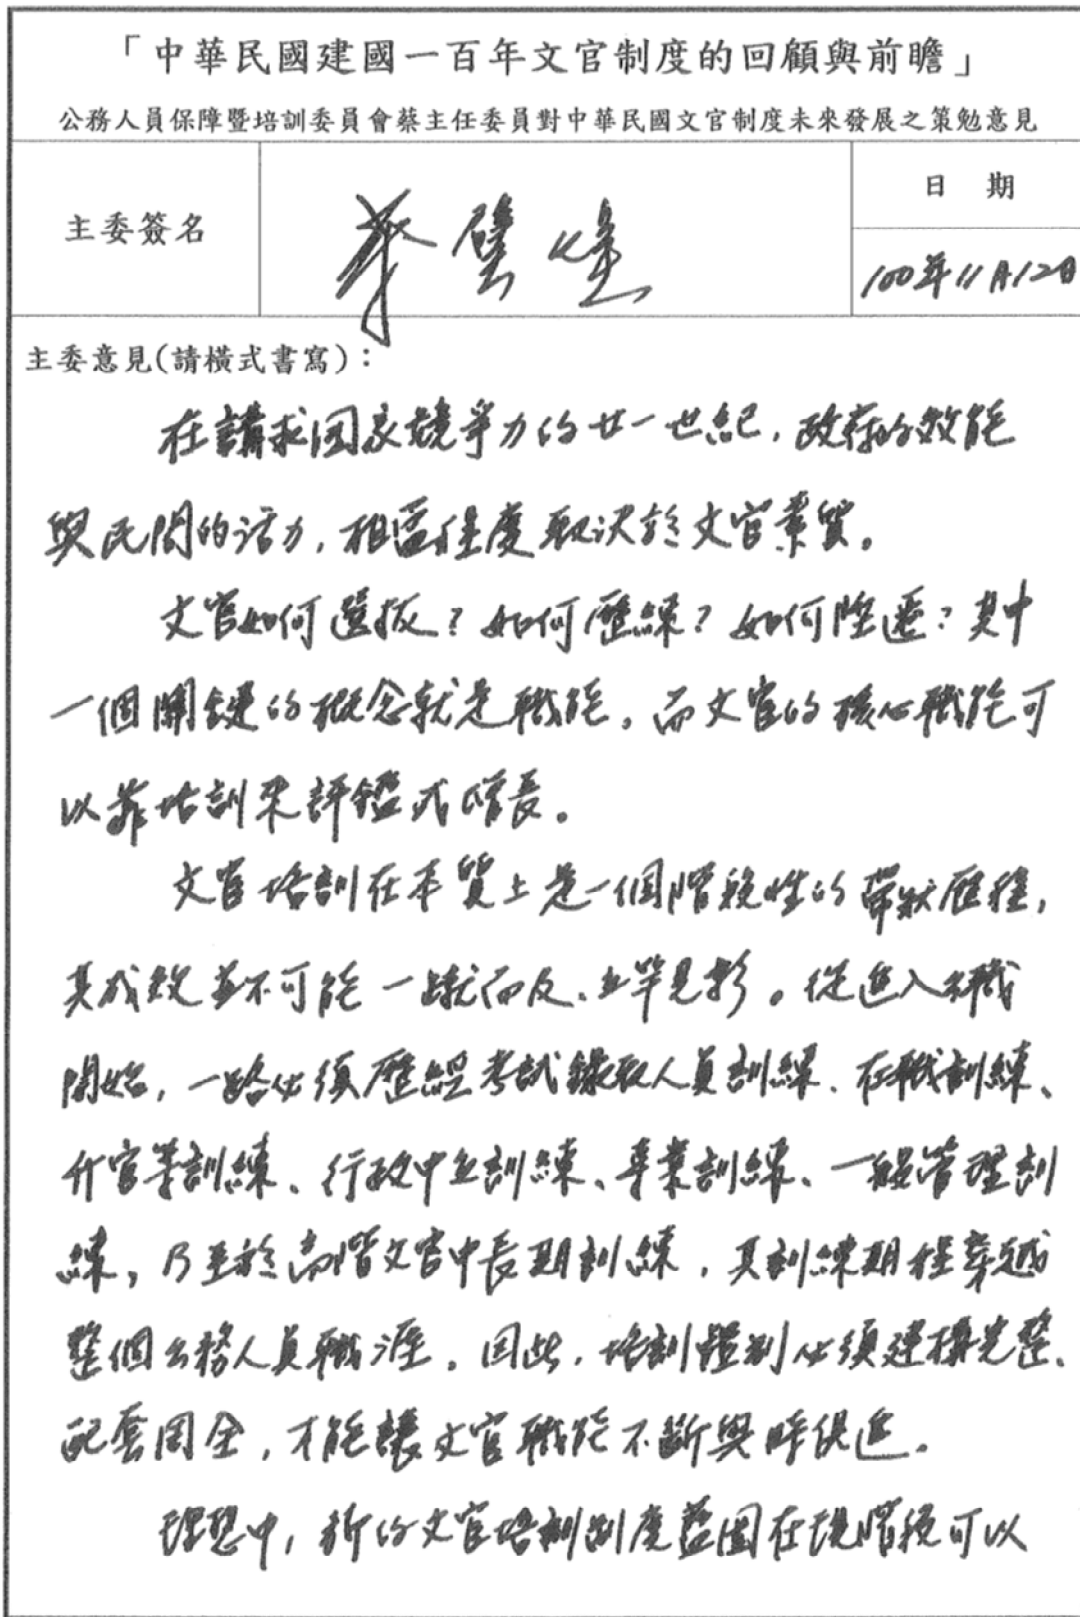 「中華民國建國一百年文官制度的回顧與前瞻」
公務人員保障暨培訓委員會蔡主任委員對中華民國文官制度未來發展之策勉意見
主委簽名
蔡璧煌
日 期
100年11月12日
主委意見(請橫式書寫)：
在講求国家競爭力的廿一世紀，政府的效能
與民間的活力，相當程度取決於文官素質。
文官如何選拔？如何歷練？如何陞遷？其中
一個關鍵的概念就是職能，而文官的核心職能可
以靠培訓來評鑑或增長。
文官培訓在本質上是一個階段性的帶狀歷程，
其成效並不可能一蹴而及、立竿見影。從進入公職
開始，一路必須歷經考試錄取人員訓練、在職訓練、
升官等訓練、行政中立訓練、專業訓練、一般管理訓
練，乃至於高階文官中長期訓練，其訓練期程穿越
整個公務人員職涯。因此，培訓體制必須建構完整、
配套周全，才能讓文官職能不斷與時俱進。
理想中，新的文官培訓制度藍圖在現階段可以